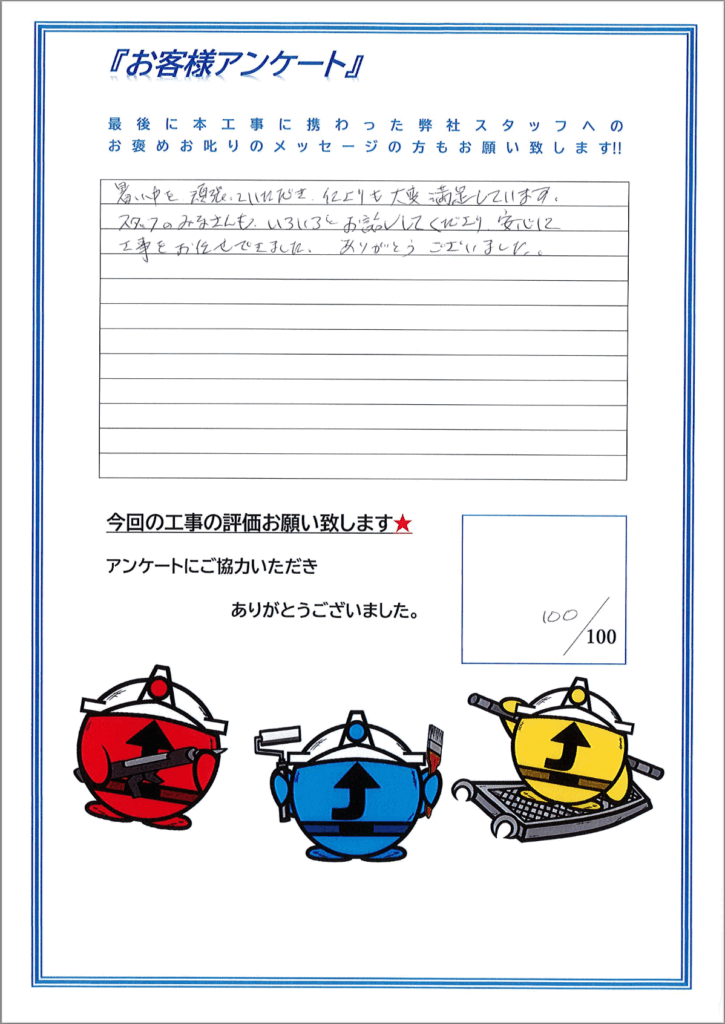 『お客様アンケート』
最後に本工事に携わった弊社スタッフへの
お褒めお叱りのメッセージの方もお願い致します!!
暑い中を頑張っていただき、仕上りも大変満足しています。
スタッフのみなさんも、いろいろとお話ししてくださり安心に
工事をお任せできました。ありがとうございました。
今回の工事の評価お願い致します★
アンケートにご協力いただき
ありがとうございました。
100/100